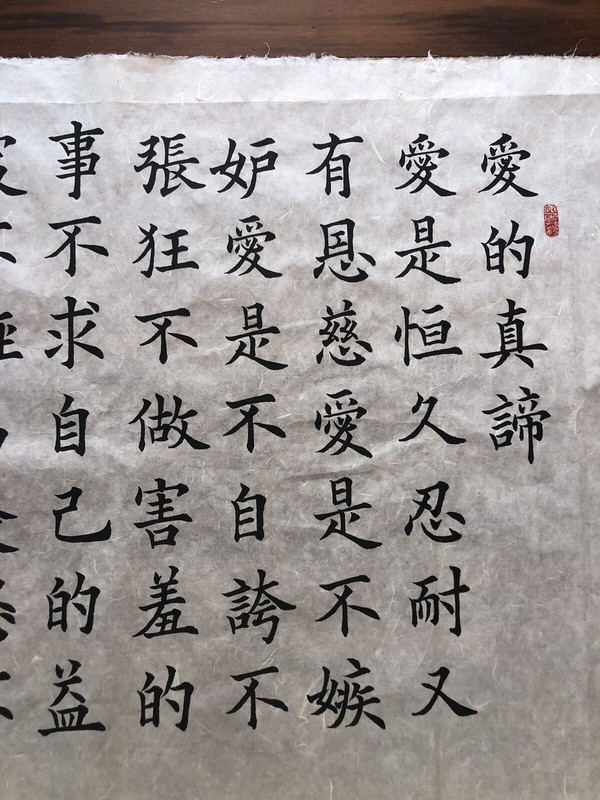 愛的真諦
愛是恒久忍耐又
有恩慈愛是不嫉
妒愛是不自誇不
張狂不做害羞的
事不求自己的益